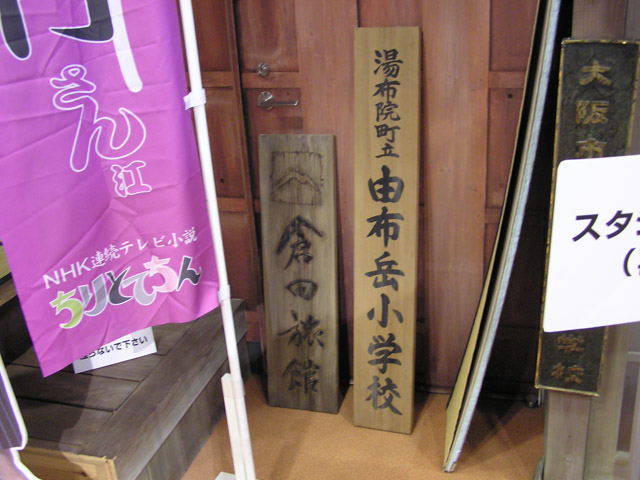 さん
江
NHK連続テレビ小説
ちりとてちん
らないで下さい
倉田旅館
湯布院町立
由布岳小学校
大阪市
学校
スタ